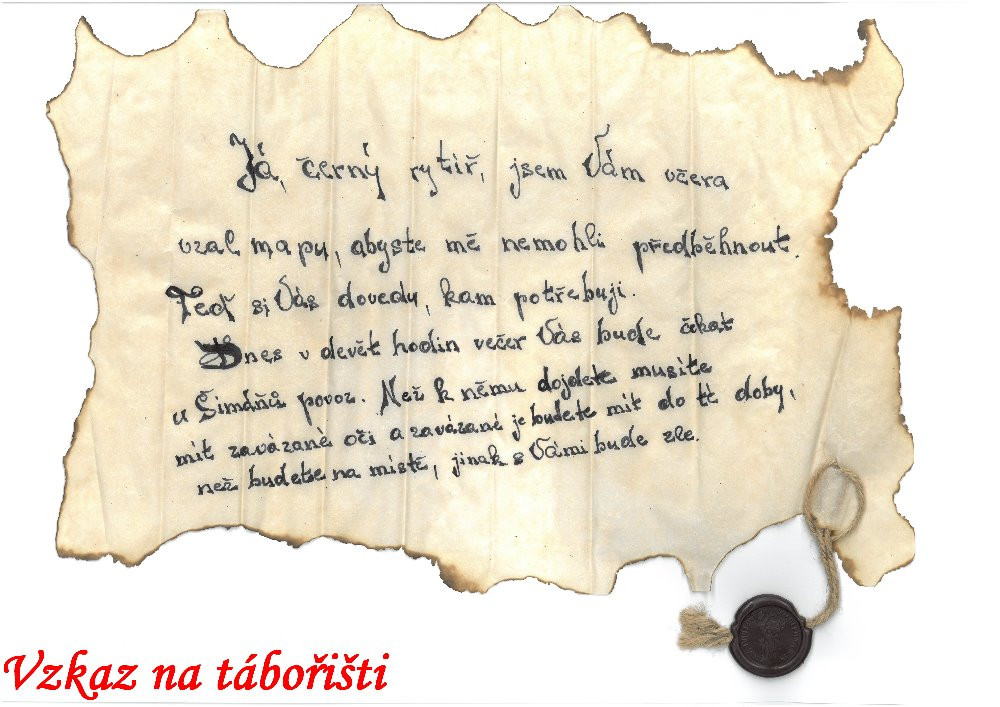 Já, černý rytíř, jsem Vám včera
vzal mapu, abyste mě nemohli předběhnout.
Teď si Vás dovedu, kam potřebuji.
Dnes v devět hodin večer Vás bude čekat
u Šimdňů povoz. Než k němu dojdete musíte
mít zavázané oči a zavázané je budete mít do té doby,
než budete na místě, jinak s Vámi bude zle.
Vzkaz na tábořišti